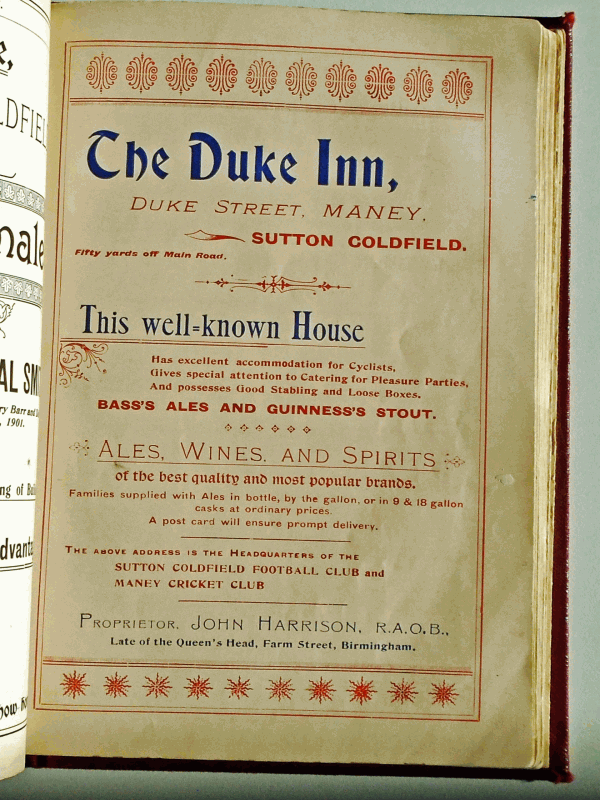 The Duke Inn,
DUKE STREET, MANEY,
SUTTON COLDFIELD.
Fifty yards off Main Road.
This well=known House
Has excellent accommodation for Cyclists,
Gives special attention to Catering for Pleasure Parties,
And possesses Good Stabling and Loose Boxes.
BASS'S ALES AND GUINNESS'S STOUT.
ALES, WINES, AND SPIRITS
of the best quality and most popular brands.
Families supplied with Ales in bottle, by the gallon, or in 9 & 18 gallon
casks at ordinary prices.
A post card will ensure prompt delivery.
THE ABOVE ADDRESS IS THE HEADQUARTERS OF THE
SUTTON COLDFIELD FOOTBALL CLUB and
MANEY CRICKET CLUB
PROPRIETOR, JOHN HARRISON, R.A.O.B.,
Late of the Queen's Head, Farm Street, Birmingham.
1901.